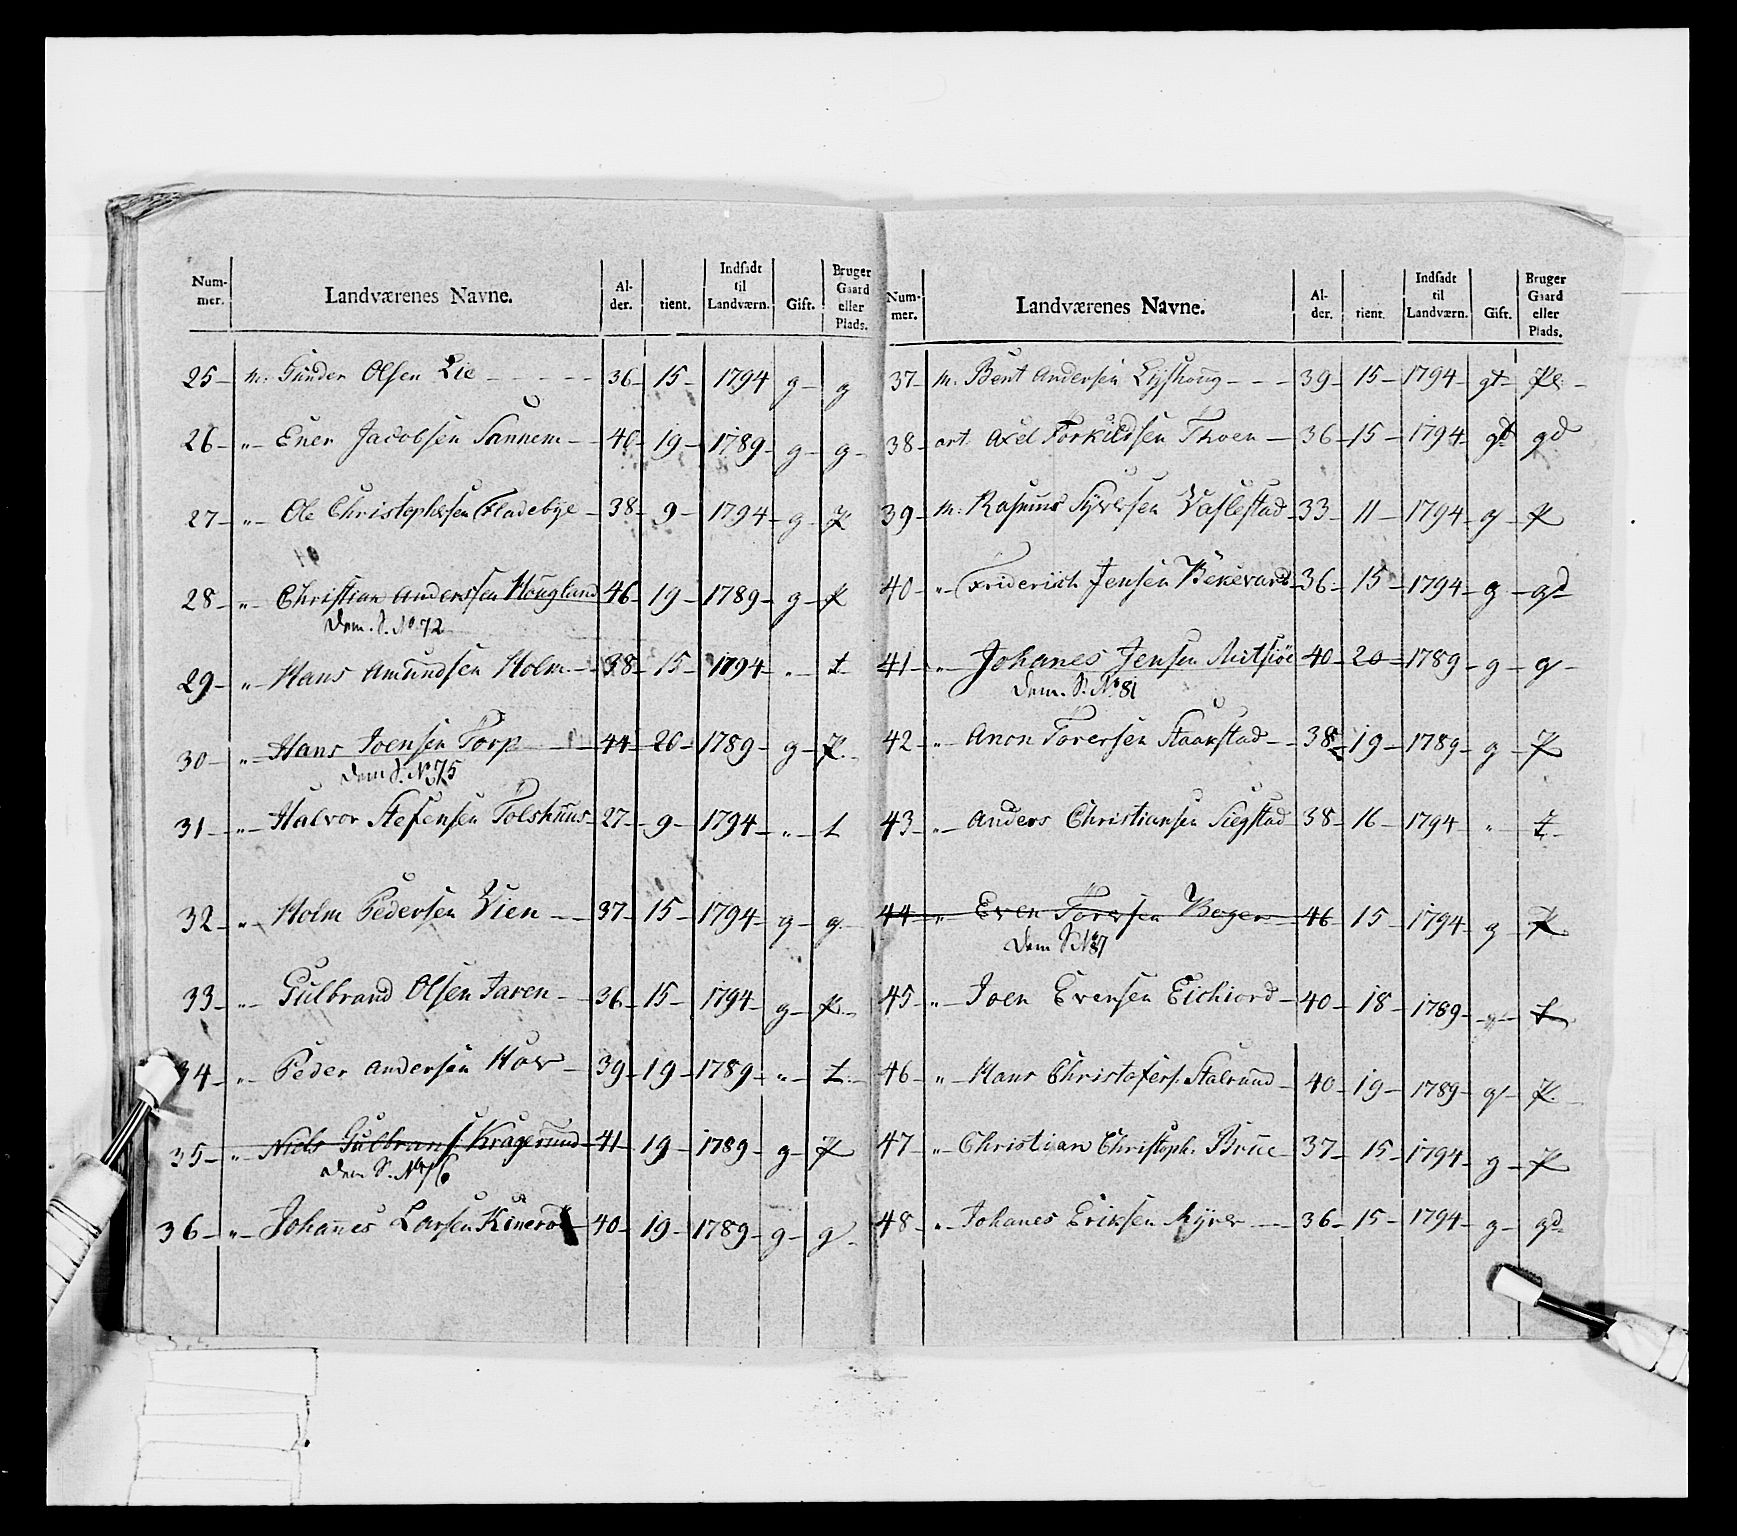 Num-
mer.
Landværenes Navne.
Al-
der.
tient.
Indsadt
til
Landværn.
Gift.
Bruger
Gaard
eller
Plads.
25 - m: Gunder Olsen Lie - 36 - 15 - 1794 g - g
26 - " - Ener Jacobsen Sannem - 40 - 19 - 1789 - g - g -
27 - " - Ole Christophersen Fladebye - 38 - 9 - 1794 - g - P
28 - " - Christian Anderssen Hougland 46 - 19 - 1789 - g - P
Dem. S. No 72
29 - " - Hans Amundsen Holm - 38 - 15 - 1794 - " - L
30 - " - Hans Joensen Torp - 44 - 20 - 1789 - g - P -
Dem S. No 75
31 - " - Halvor Stefensen Tolshuus - 27 - 9 - 1794 - " - L
32 - " - Holm Pedersen Vien - 37 - 15 - 1794 - g - g
33 - " - Gulbrand Olsen Jaren - 36 - 15 - 1794 - g - P -
34 - " - Peder Andersen Hov - 39 - 19 - 1789 - " - L -
35 - " - Niels Gulbrans Kragerund - 41 - 19 - 1789 - g - P
Dem S. No 76
36 - " - Johannes Larsen - 40 - 19 - 1789 - g - g -
Num-
mer.
Landværenes Navne.
Al-
der.
tient.
Indsadt
til
Landværn.
Gift.
Bruger
Gaard
eller
Plads.
37 - m. Bent Andersen - 39 - 15 - 1794 - gt - Pl -
38 - art. Axel Torkildsen Thoen - 36 - 15 - 1794 - gt gd
39 - m: Rasmus Syversen Vaslestad - 33 - 11 - 1794 - g - P
40 - " - Friderich Jensen Bekevard - 36 - 15 - 1794 - g - gd
41 - " - Johanes Jensen 40 - 20 - 1789 - g - g -
Dem. S. No 81
42 - " - Anon Torersen Staarstad - 38 - 19 - 1789 - g - P
43 - " - Anders Christiansen Siegstad 38 - 16 - 1794 " - L -
44 - " Even Torersen Boger - 46 - 15 - 1794 - g - P
Dem S No 87
45 - " - Joen Evensen Eichiord - 40 - 18 - 1789 - g - L
46 - " - Hans Christofers. Stalrund - 40 - 19 - 1789 - g - P -
47 - " - Christian Christoph. Brue - 37 - 15 - 1794 - g - P
48 - " - Johanes Eriksen Myrer - 36 - 15 - 1794 - g - gd